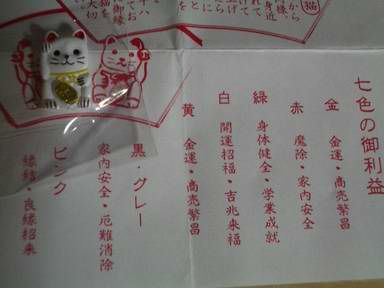 七色の御利益
金 金運・商売繁昌
赤 魔除・家内安全
緑 身体健全・学業成就
白 開運招福・吉兆来福
黄 金運・商売繁昌
黒・グレー
家内安全・厄難消除
ピンク
縁結・良縁招来